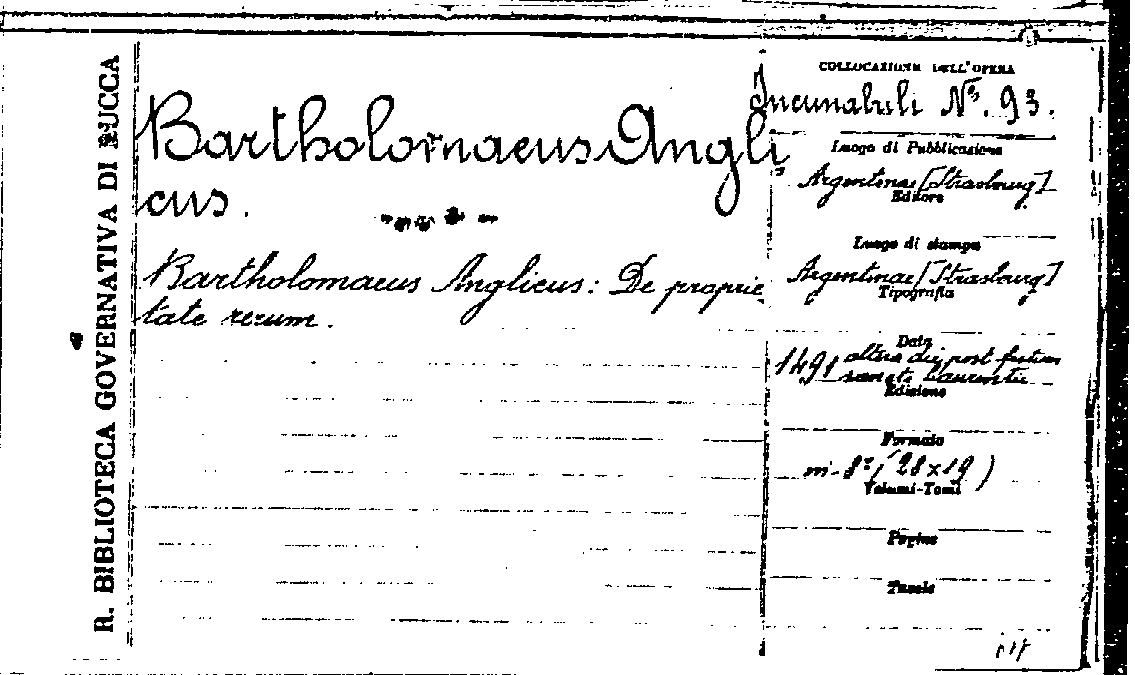 R. BIBLIOTECA GOVERNATIVA DI LUCCA
Bartholomaeus Angli
cus.
Bartholomaeus Anglicus: De proprie
tate rerum.
COLLOCAZIONE DELL'OPERA
Incunabuli Nº. 93.
Luogo di Pubblicazione
Argentinae [Strasburg]
Editore
Luogo di stampa
Argentinae [Strasburg]
Tipografia
Data
1491 altera die post festum
sancti Laurentii
Edizione
Formato
in-8º (28x19)
Volumi-Tomi
Pagine
Tavole